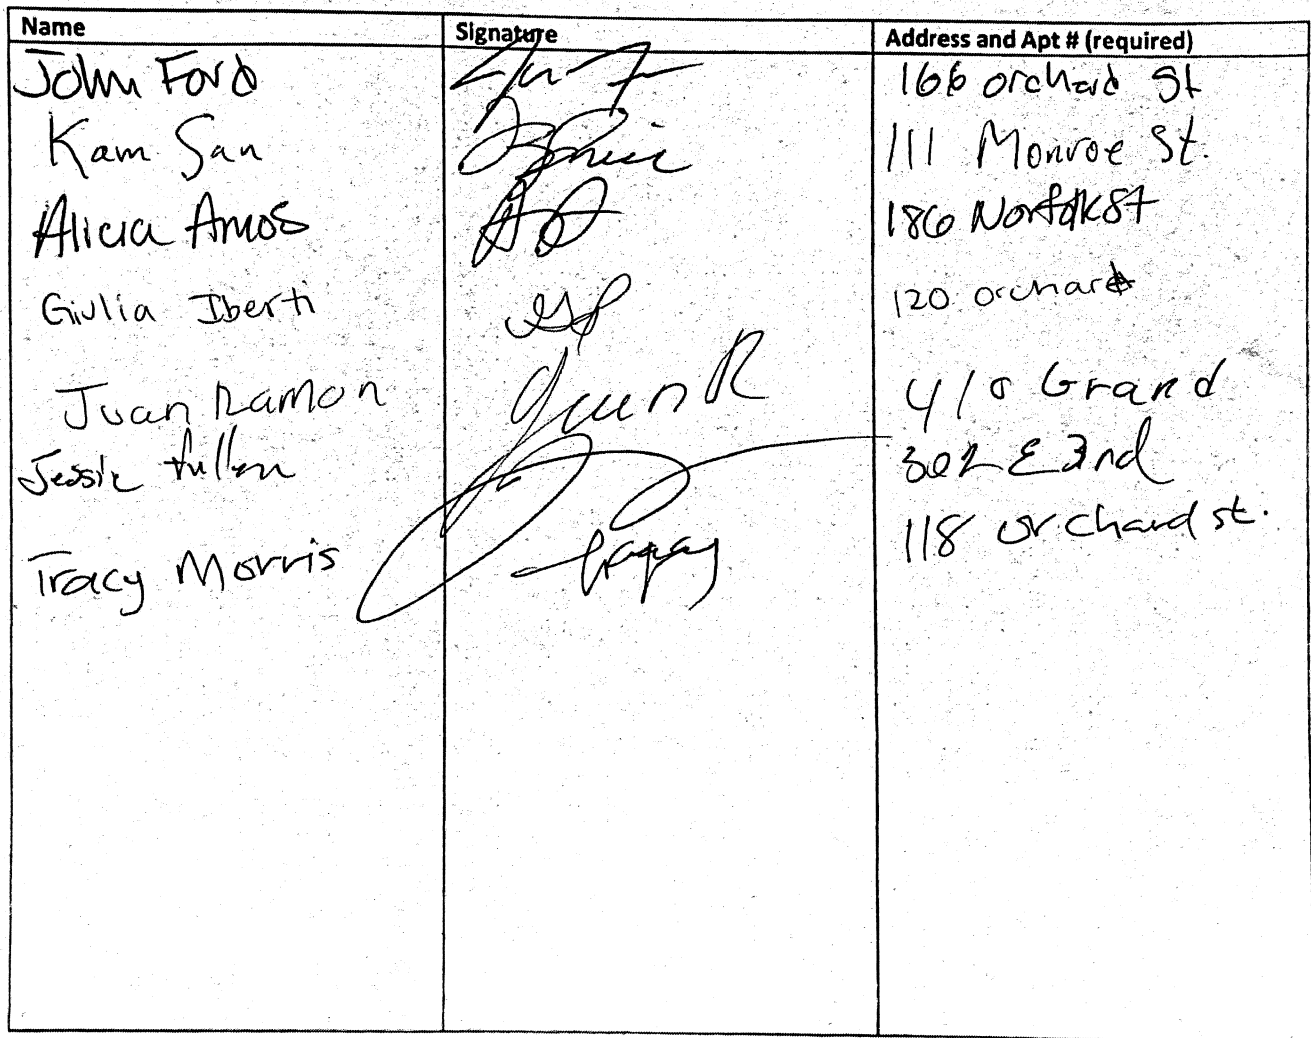 Name Signature Address and Apt # (required)
John Ford 166 orchard St
Kam San 111 Monroe St.
Alicia Amos 186 Norfolk St
Giulia Iberti 120 orchard
Juan Ramon Juan R 410 Grand
Jessie Fuller 302 E 3nd
Tracy Morris 118 orchard st.